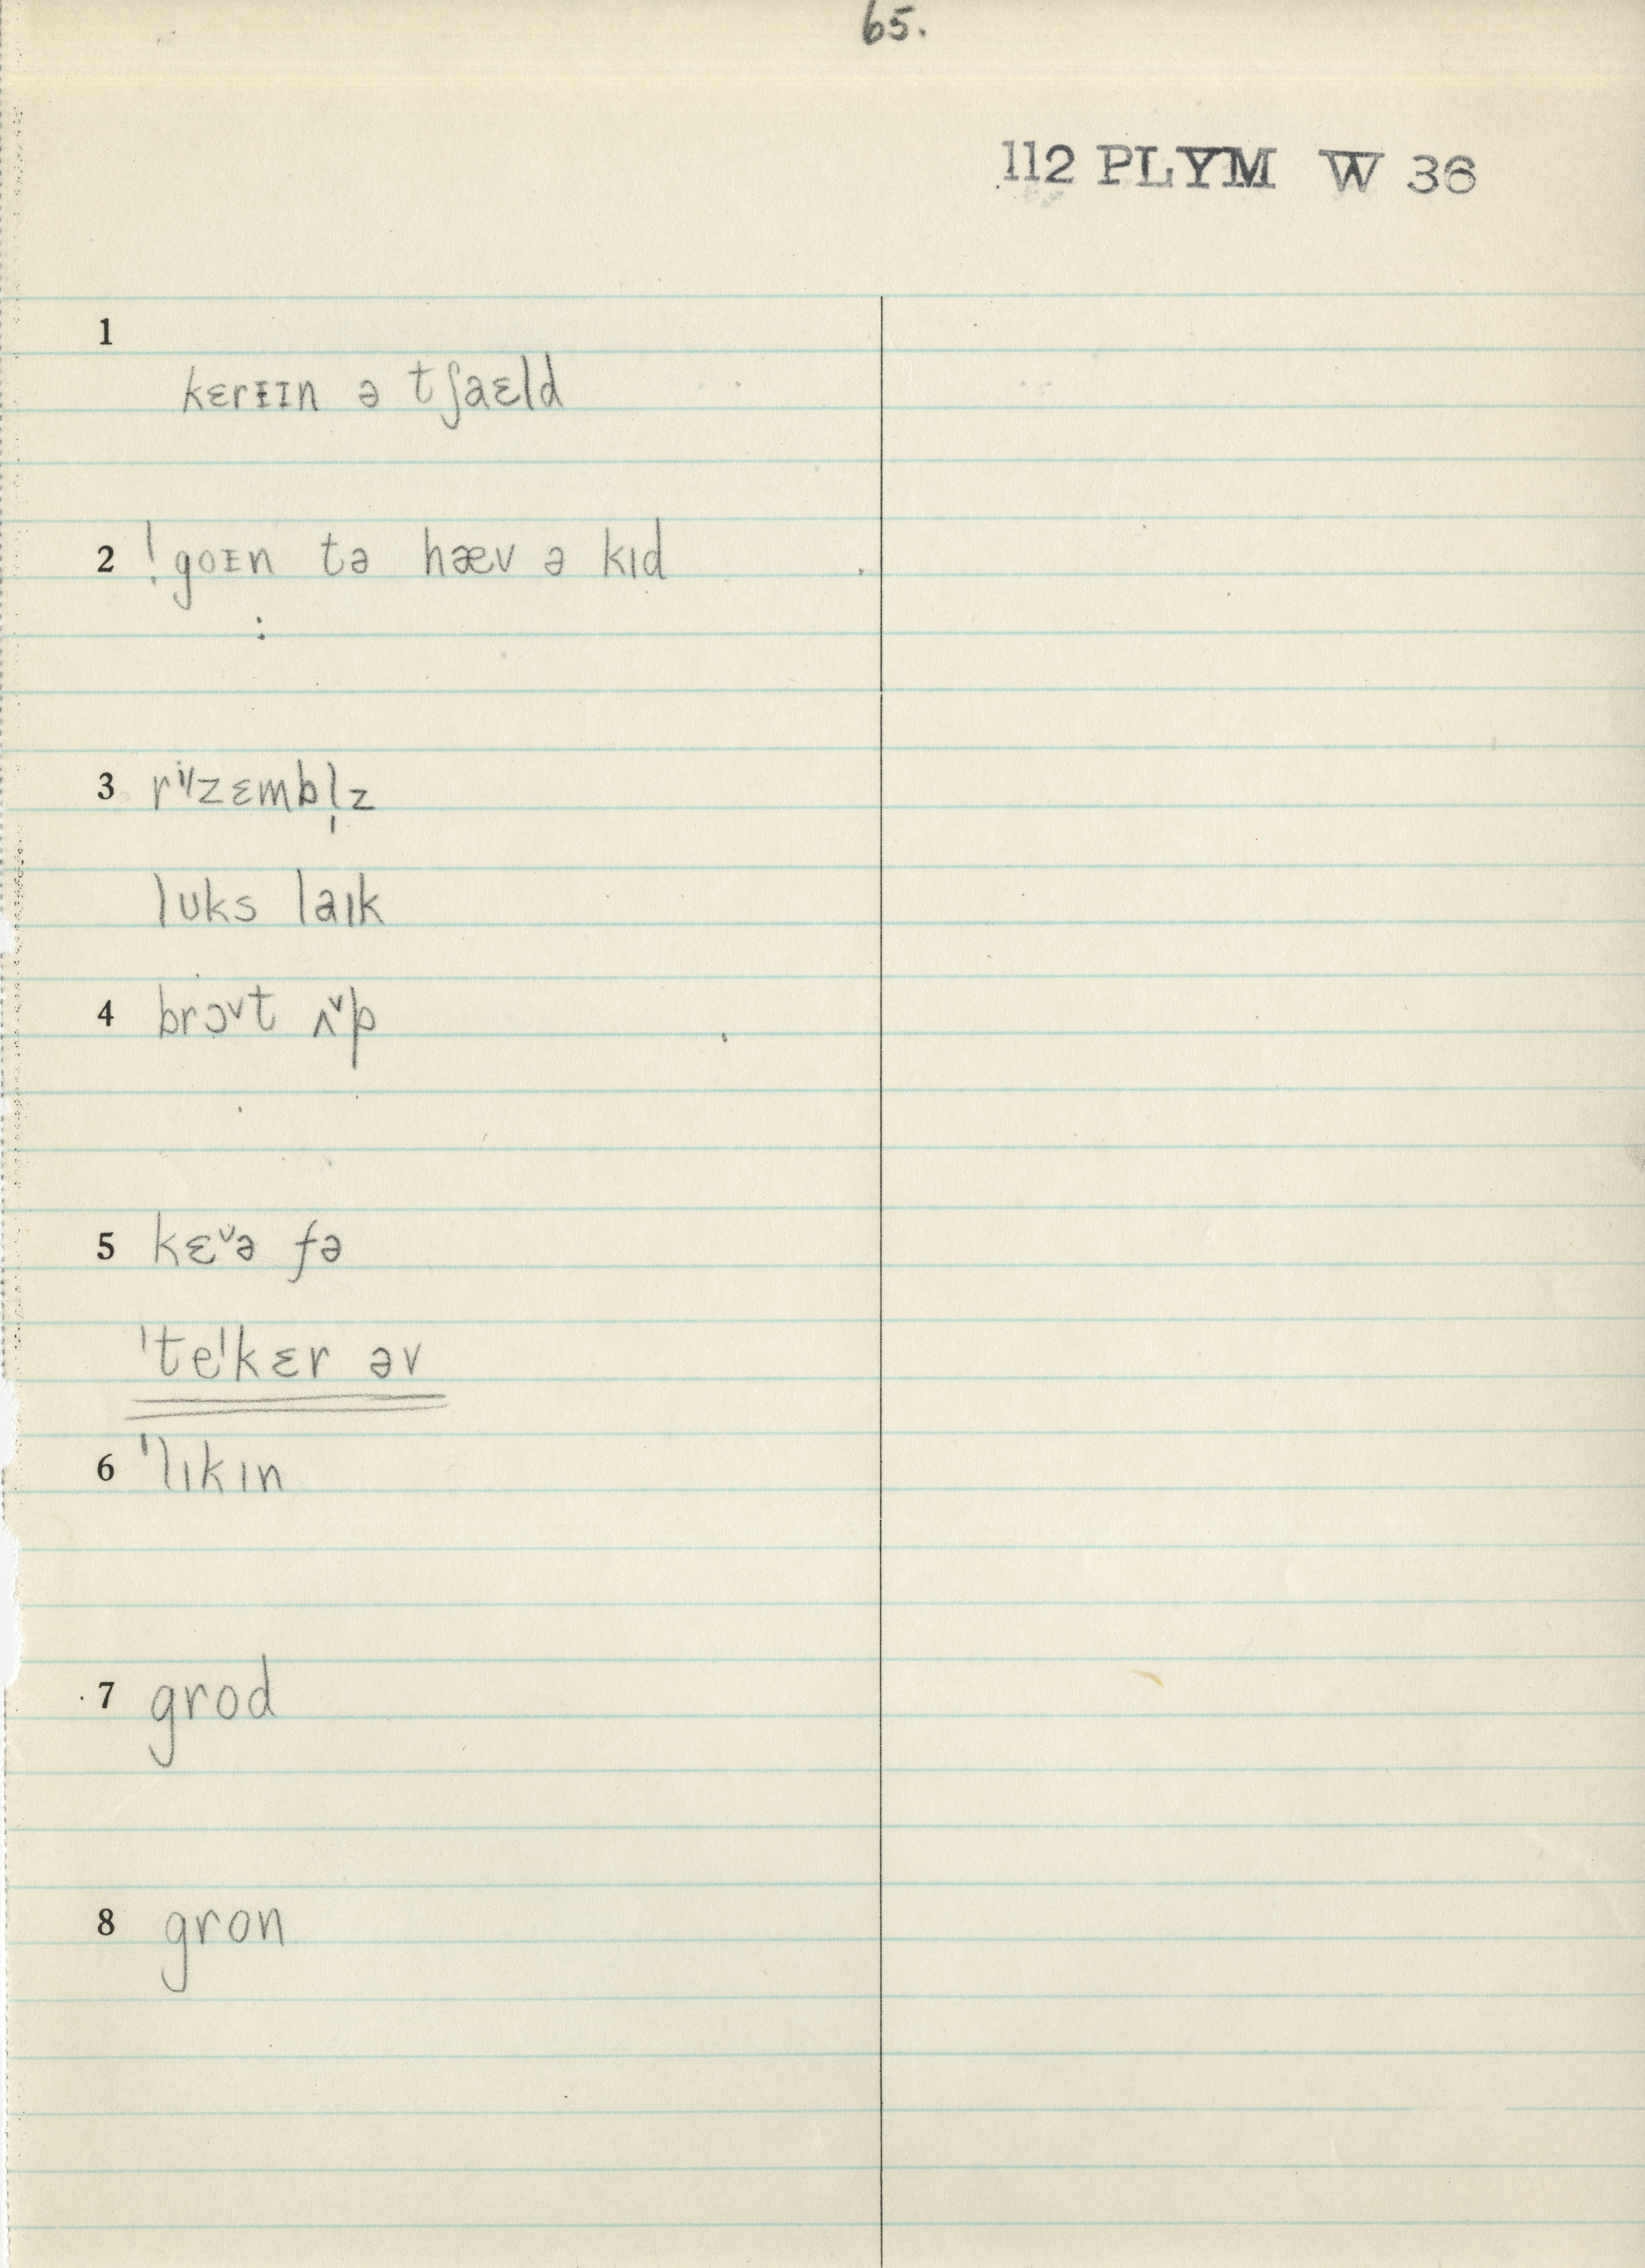 65.
112 PLYM W 36
1
kɛrᵻɪn ə tʃaɛld
2 ! goᵻn tə hæv ə kɪd
:
3 rⁱ/zɛmbl̩z
lʊks laɪk
4 brɔ˅t ʌ˅p
5 kɛ˅ə fə
ˈteˈkɛr əv
6 ˈlɪkɪn
7 grod
8 gron